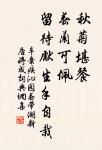 秋菊堪餐
春蘭可佩
留待生手自栽
辛棄疾沁園春帶湖新
居將成詞典網集